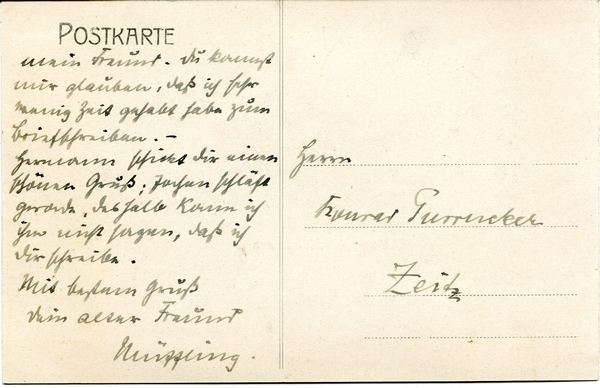 POSTKARTE
mein Freund. Du kannst
mir glauben, daß ich sehr
wenig Zeit gehabt habe zum
Briefschreiben. –
Hermann schickt dir einen
schönen Gruß; Jochen schläft
gerade, deshalb kann ich
ihm nicht sagen, daß ich
dir schreibe.
Mit bestem Gruß
dein alter Freund
Müffling.
Herrn
Konrad
Zeitz